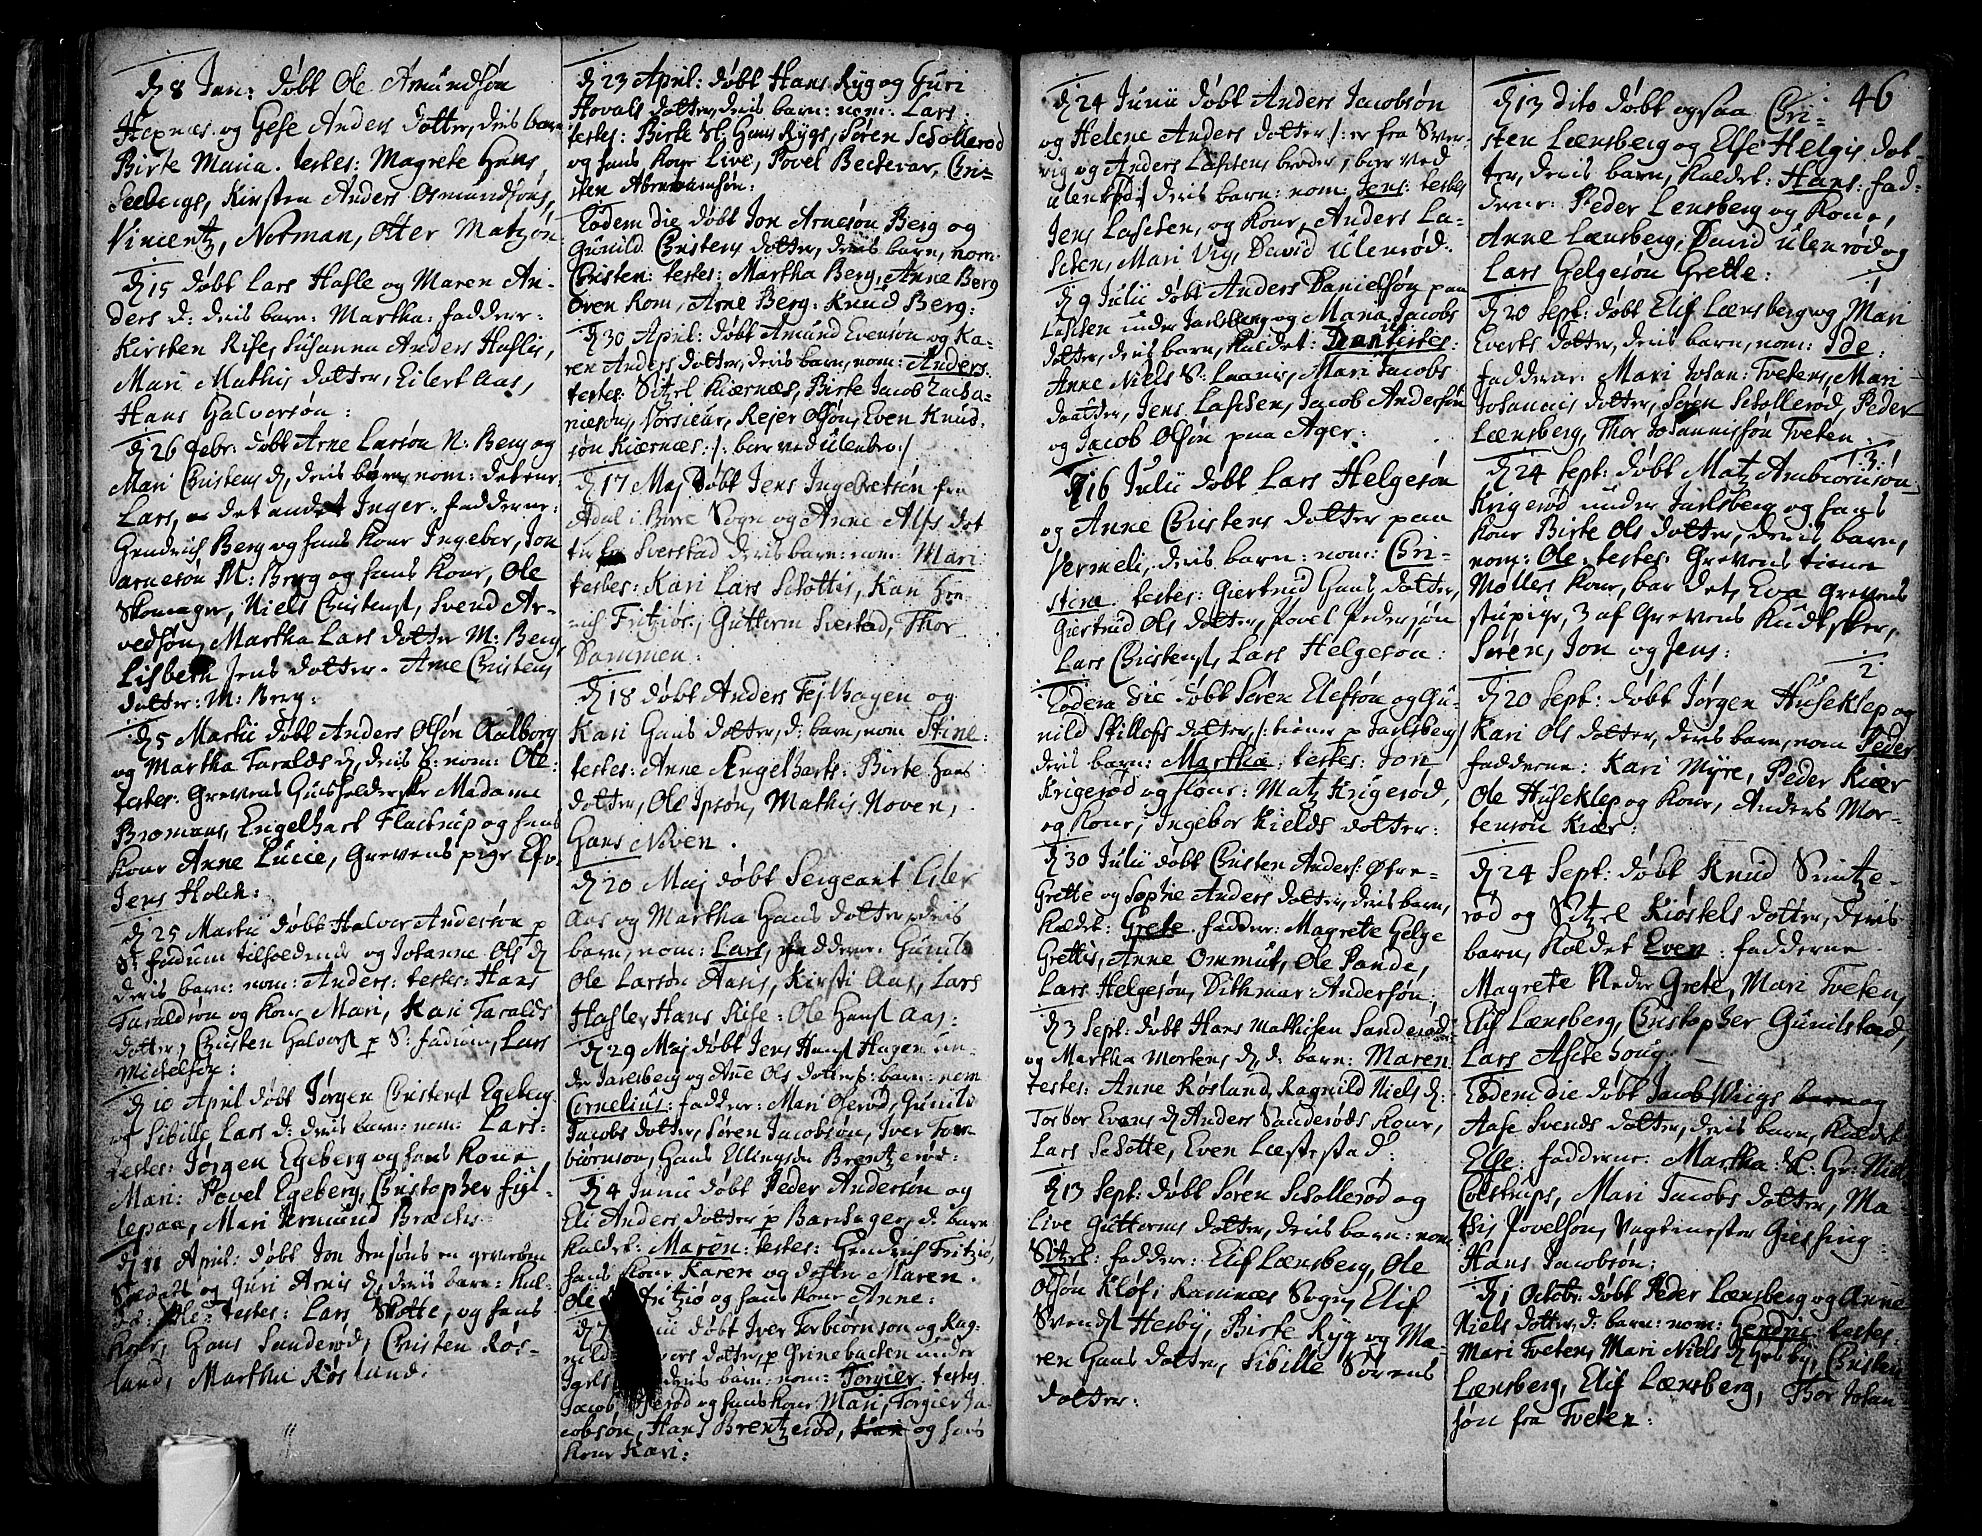 d 8 Jan: døbt Ole Amundsøn
og Gese Anders dotter, dris barn
Birte Maria. testes: Magrete Hans
Kirsten Anders Osmundsøns,
Vincentz, Norman, Otter Matzøn
d 15 døbt Lars Hasle og Maren An-
ders d: dris barn: Martha: faddere:
Kirsten Rise, Susanna Anders Haslis,
Mari Mathis dotter, Eilert Aas,
Hans Halversøn:
d 26 Febr: døbt Arne Larsøn N: Berg og
Mari Christens d, dris børn, nom: det ene
Lars, det andet Inger: fadderne:
Hendrich Berg og hans kone Ingebor, Jon
Arnesøn M: Berg og hans kone, Ole
Skomager, Niels Christens, Svend Ar-
vedsøn, Martha Lars dotter M: Berg,
Lisbeth Jens dotter. Arne Christens
dotter: M: Berg:
d 5 Martii døbt Anders Olsøn Aalborg
og Martha Taralds d, dris b: nom: Ole:
testes: Grevens Huusholderske Madame
Bromans, Engelhart Flastrup og hans
kone Anne Lucie, Grevens pige
Jens Holch:
d 25 Martii døbt Halvor Andersøn p
S: fadum tilholdende og Johanne Ols d
deris barn: nom: Anders: testes: Hans
Taraldsøn og kone Mari, Kari Taralds
dotter, Christen Halvors p S: fadum, Lars
Mickelsøn:
d 10 April døbt Jørgen Christens Egeberg
og Sibille Lars d: dris barn: nom: Lars:
testes: Jørgen Egeberg og hans kone
Mari: Povel Egeberg, Christopher
Mari
d 11 April: døbt Jon Jensøns en geworben
Soldats og Guri Arnis d, deris barn: kal-
det: Ole: testes: Lars Skotte, og hans
kone, Hans Sanderød, Christen Røs-
land, Martha Røsland:
d 23 April: døbt Hans Ryg og Guri
Hovals dotter, deris barn: nom: Lars:
testes: Birte St. Hans Rygs, Søren Schollerød
og hans kone Live, Povel Beckevar, Chri-
sten Abramsøn:
Eodem die døbt Jon Arnesøn Berg og
Gunild Christens dotter, dris barn, nom:
Christen: testes: Martha Berg, Anne Berg
Even Rom, Arne Berg: Knud Berg:
d 30 April: døbt Amund Evensøn og Ka-
ren Anders dotter, deris barn, nom: Anders:
testes: Sitzel Kiernæs, Birte Jacob Zacha-
niesøn, Rejer Olsøn, Even Knud-
søn Kiærnæs:/: boer ved Ulenbro:/
d 17 Maj døbt Jens Ingebretsøn fra
Adal i Borre Sogn og Anne Alfs dot
ter Sverstad deris barn: nom: Mari
testes: Kari Lars Schottis, Kari Hen-
rich Fritziøs, Gutterm Sverstad, Thor
Dammen:
d 18 døbt Anders Fejlhagen og
Kari Hans dotter, d: barn, nom Stine:
testes: Anne Engelharts: Birte Hans
dotter, Ole Ipsøn, Mathis Noven,
Hans Noven.
d 20 Maj døbt Sergeant Eiler
Aas og Martha Hans dotter, dris
barn, nom: Lars, faddere: Gunild
Ole Larsøn Aasis, Kirsti Aas, Lars
Hasle, Hans Rise: Ole Hans Aas:
d 29 Maj døbt Jens Hans Hagen un-
der Jarlsberg og Añe Ols dotters: barn: nom
Cornelius: faddere: Mari Oserød, Gunild
Jacobs dotter, Søren Jacobsøn, Iver Tor-
biørnsøn, Hans Ellingsøn Brentzerød:
d 4 Junii døbt Peder Andersøn og
Eli Anders dotter p Barchager, d: barn
kaldet: Maren: testes: Hendrich Fritziø,
hans kone Karen og dotter Maren.
Ole Fritziø og hans kone Anne:
d Junii døbt Iver Torbiørnsøn og Rag-
nild dotter, p Grinebacken under
Jarls deris barn: nom: Torgier. testes
Jacob Oserød og hans kone Mari, Torgier Ja-
cobsøn, Hans Brentzerød, og hans
kone Kari:
46
d 24 Junii døbt Anders Jacobsøn
og Helene Anders dotter /: er fra Sver-
rig og Anders Lassens broder, boer ved
Ulenbro:/ deris barn: nom: Jens: testes
Jens Lassen, og kone, Anders La-
ssen, Mari Vig, David Ulenrød:
d 9 Julii døbt Anders Danielsøn paa
Lassen under Jarlsberg og Maria Jacobs
dotter, deris barn, kaldet: testes:
Anne Niels S: Laans, Mari Jacobs
daatter, Jens Lassen, Jacob Andersøn
og Jacob Olsøn paa Ager:
d 16 Julii døbt Lars Helgesøn
og Anne Christens dotter paa
Vermeli, deris barn: nom: Chri-
stine. testes: Giertrud Hans dotter,
Giertrud Ols dotter, Povel Pedersøn
Lars Christens, Lars Helgesøn:
Eodem die døbt Søren Elefsøn og Gu-
nild Skillofs dotter, /: tiener p Jarlsberg /
deris barn: Martha: testes: Jon
Krigerød og kone: Matz Krigerød,
og kone, Ingebor Kields dotter:
d 30 Julii døbt Christen Anders: Østre-
Grette og Sophie Anders dotter, deris barn,
kaldet: Grete. fadder: Magrete Helge
Grettis, Anne Ommut, Ole Pande,
Lars Helgesøn, Dithmar: Andersøn:
d 3 Sept: døbt Hans Mathisen Sanderød
og Martha Mortens d, d: barn: Maren
testes: Anne Røsland, Ragnild Niels d:
Torbor Evens d, Anders Sanderøds kone,
Lars Schotte, Even Læstestad:
d 13 Sept: døbt Søren Schollerød og
Live Guttorms dotter, deris barn: nom:
Sitzel: faddere: Elif Lænsberg, Ole
Olsøn Kløf, Ramnæs Sogn, Elif
Svends Hesby, Birte Ryg og Ma-
ren Hans dotter, Sibille Sørens
dotter:
d 13 dito døbt ogsaa Chri-
sten Lænsberg og Else Helgis dot-
ter, deris barn, kaldet: Hans: fad-
derne: Peder Lensberg og Kone,
Anne Lænsberg, David Ulenrød og
Lars Helgesøn Grette:
1
d 20 Sept: døbt Elif Lænsberg og Mari
Everts dotter, deris barn, nom: Ide:
fadderne: Mari Johan: Tvetens, Mari
Johannis dotter, Søren Schollerød, Peder
Lænsberg, Thor Johannissøn Tveten:
3
d 24 Sept: døbt Matz Ambiørnsøn
Krigerød under Jarlsberg og hans
kone Birte Ols dotter, deris barn,
nom: Ole: testes: Grevens tiener
Møllers kone, bar det, Eva Grevens
stupige, 3 af Grevens Kudsker,
Søren, Jon og Jens:
2
d 20 Sept: døbt Jørgen Huseklep og
Kari Ols dotter, deris barn, nom Peder
fadderne: Kari Myre, Peder Kiær
Ole Huseklep og kone, Anders Mor-
tensøn Kiær:
d 24 Sept: døbt Knud Smitze-
rød og Sitzel Kiøstels dotter, deris
barn, kaldet Even: fadderne
Magrete Peder Grete, Mari Tveten,
Elif Lænsberg, Christopher Gunilstad,
Lars Aschehoug:
Eodem die døbt Jacob Wiigs barn og
Aase Svends dotter, deris barn, kaldet
Else: fadderne: Martha: Niels
Colstrups, Mari Jacobs dotter, Ma-
this Povelsøn, Vagtmester Giessing:
Hans Jacobsøn:
d 1 Octobr: døbt Peder Lænsberg og Anne
Niels dotter, d: barn: nom: Hendric: testes:
Mari Tveten, Mari Niels d Hesby, Christen
Lænsberg, Elif Lænsberg, Thor Johan-
søn fra Tveten: